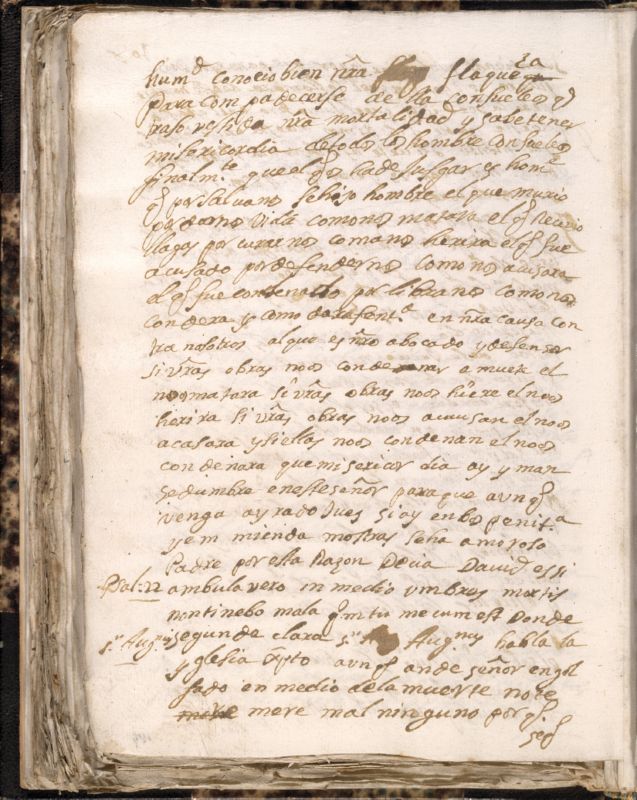 humd conocio bien nra flaqueza
para compadecerse de lla consuelos q
traso vestida nra mortalidad y sabe tener
misericordia de todos los hombre consuelos
finalmte que el q ha de Jusgar es home
q por salvarnos se hiso hombre el que murio
por darnos vida como nos matara el q Recivio
llagas por curarnos como nos herira el q fue
acusado por defendernos como nos acusara
el q fue condenado por librarnos como nos
condera y como dara sente en nra causa con
tra nosotros al que es nro abocado y defensor
si vras obras nos condenar a muerte el
no os matara si vras obras nos hiere el no os
herira si vras obras nos acusan el no os
acasara y si ellas nos condenan el no os
condenara que misericordia ay y man
sedumbre en este señor para que aunq
venga ayrado Jues si ay en bos penita
y emmienda mostras seha amoroso
Padre por esta Razon Decia David etsi
Psal: 22 ambulavero in medio umbres mortis
non tinebo mala qm tu mecum est Donde
s. Augnus segun declara sr Augnus habla la
yglesia Xpto aunq ande señor engol
fado en medio de la muerte no te
mere mal ninguno por q.
seq